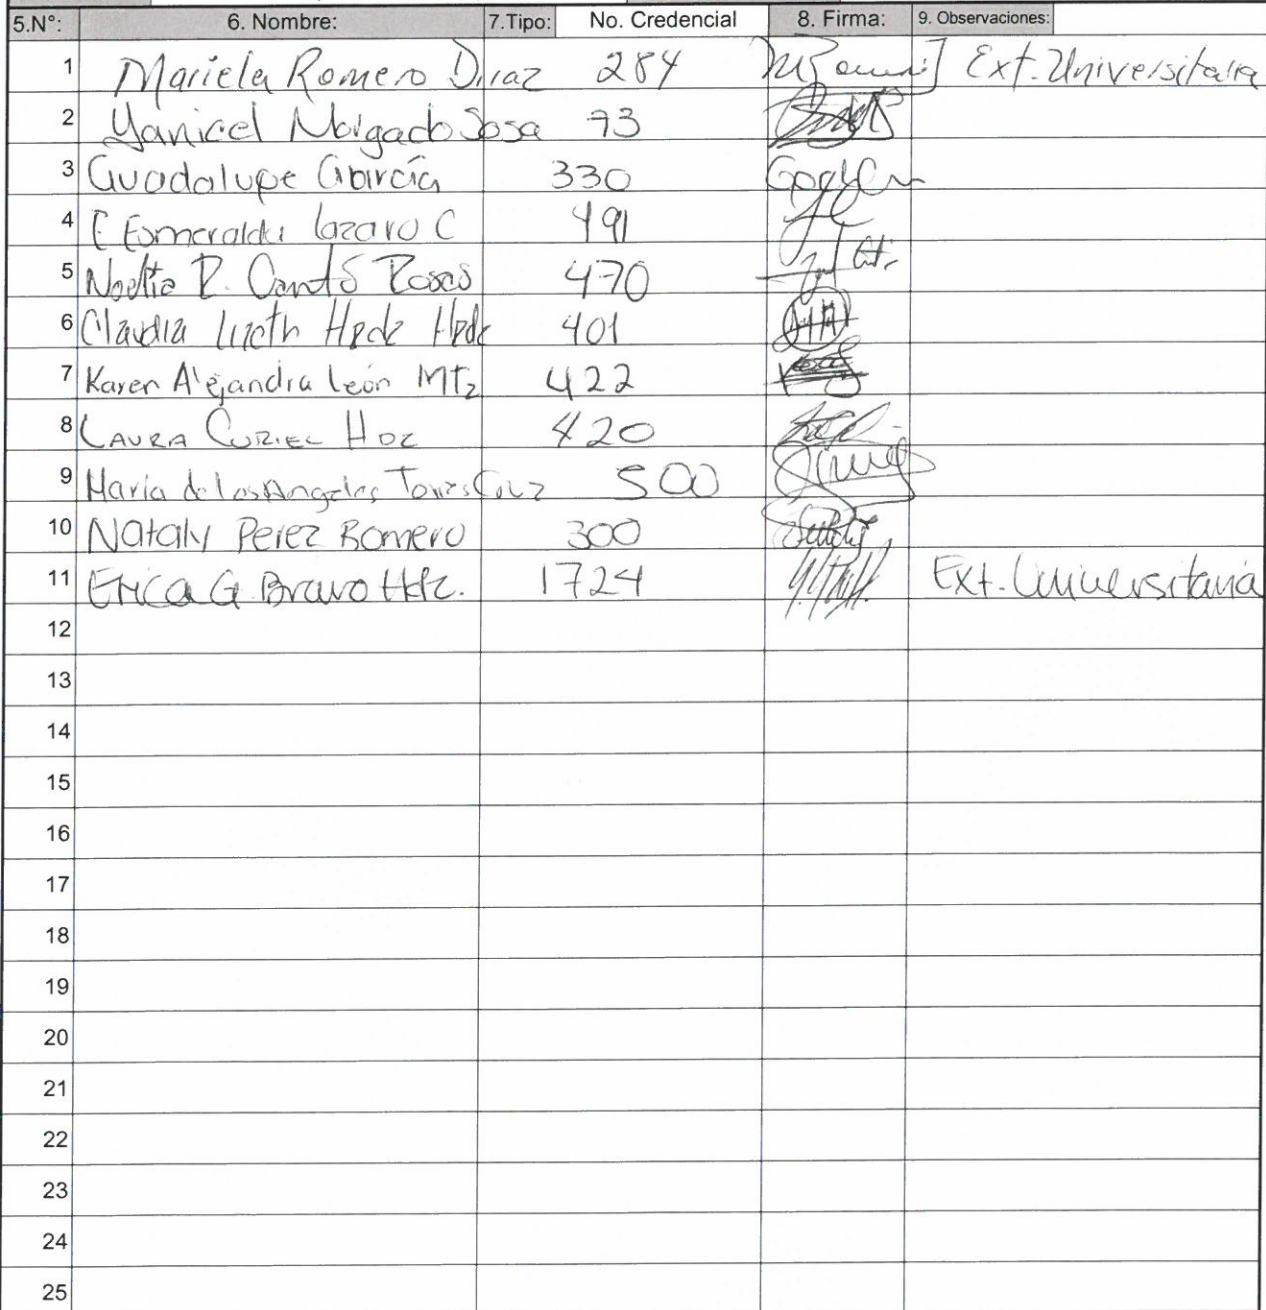 5.N°: 6. Nombre: 7.Tipo: No. Credencial 8. Firma: 9. Observaciones:
1 Mariela Romero Diaz 284 Ext. Universitaria
2 Yanicel Morgado Sosa 73
3 Guadalupe García 330
4 E Esmeralda Lazaro C 491
5 Noelia R. Cantó Rosas 470
6 Claudia Lizeth Hdez Hdz 401
7 Karen Alejandra León Mtz 422
8 LAURA CURIEL HDZ 420
9 María de los Angeles Torres Cruz 500
10 Nataly Perez Romero 300
11 Erica G. Bravo Hdz. 1724 Ext. Universitaria
12
13
14
15
16
17
18
19
20
21
22
23
24
25